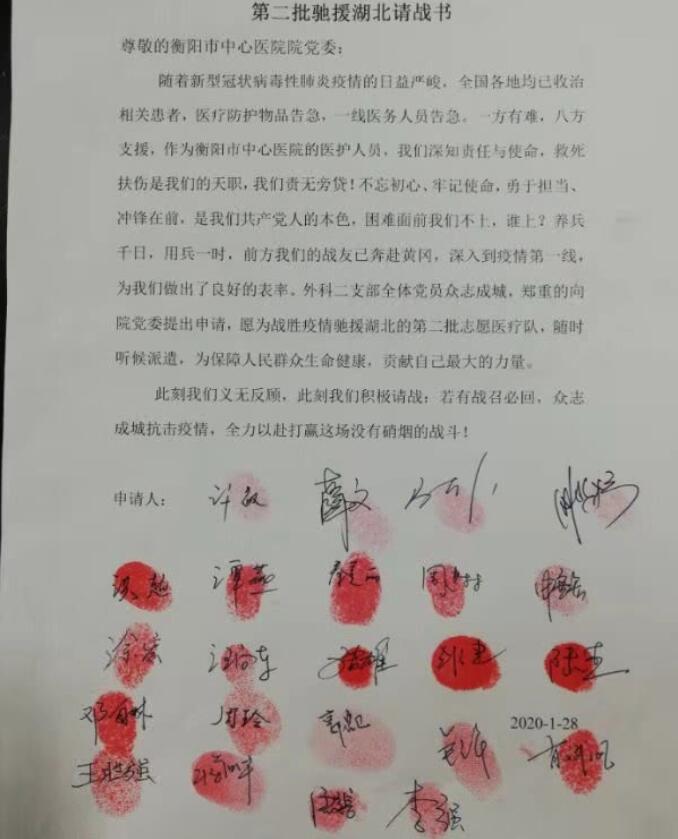 第二批驰援湖北请战书
尊敬的衡阳市中心医院院党委：
随着新型冠状病毒性肺炎疫情的日益严峻，全国各地均已收治
相关患者，医疗防护物品告急，一线医务人员告急。一方有难，八方
支援，作为衡阳市中心医院的医护人员，我们深知责任与使命，救死
扶伤是我们的天职，我们责无旁贷！不忘初心、牢记使命，勇于担当、
冲锋在前，是我们共产党人的本色，困难面前我们不上，谁上？养兵
千日，用兵一时，前方我们的战友已奔赴黄冈，深入到疫情第一线，
为我们做出了良好的表率。外科二支部全体党员众志成城，郑重的向
院党委提出申请，愿为战胜疫情驰援湖北的第二批志愿医疗队，随时
听候派遣，为保障人民群众生命健康，贡献自己最大的力量。
此刻我们义无反顾，此刻我们积极请战：若有战召必回，众志
成城抗击疫情，全力以赴打赢这场没有硝烟的战斗！
申请人： 许敏 薛文
谭燕
涂宏 陈杰
周玲
2020-1-28
李强